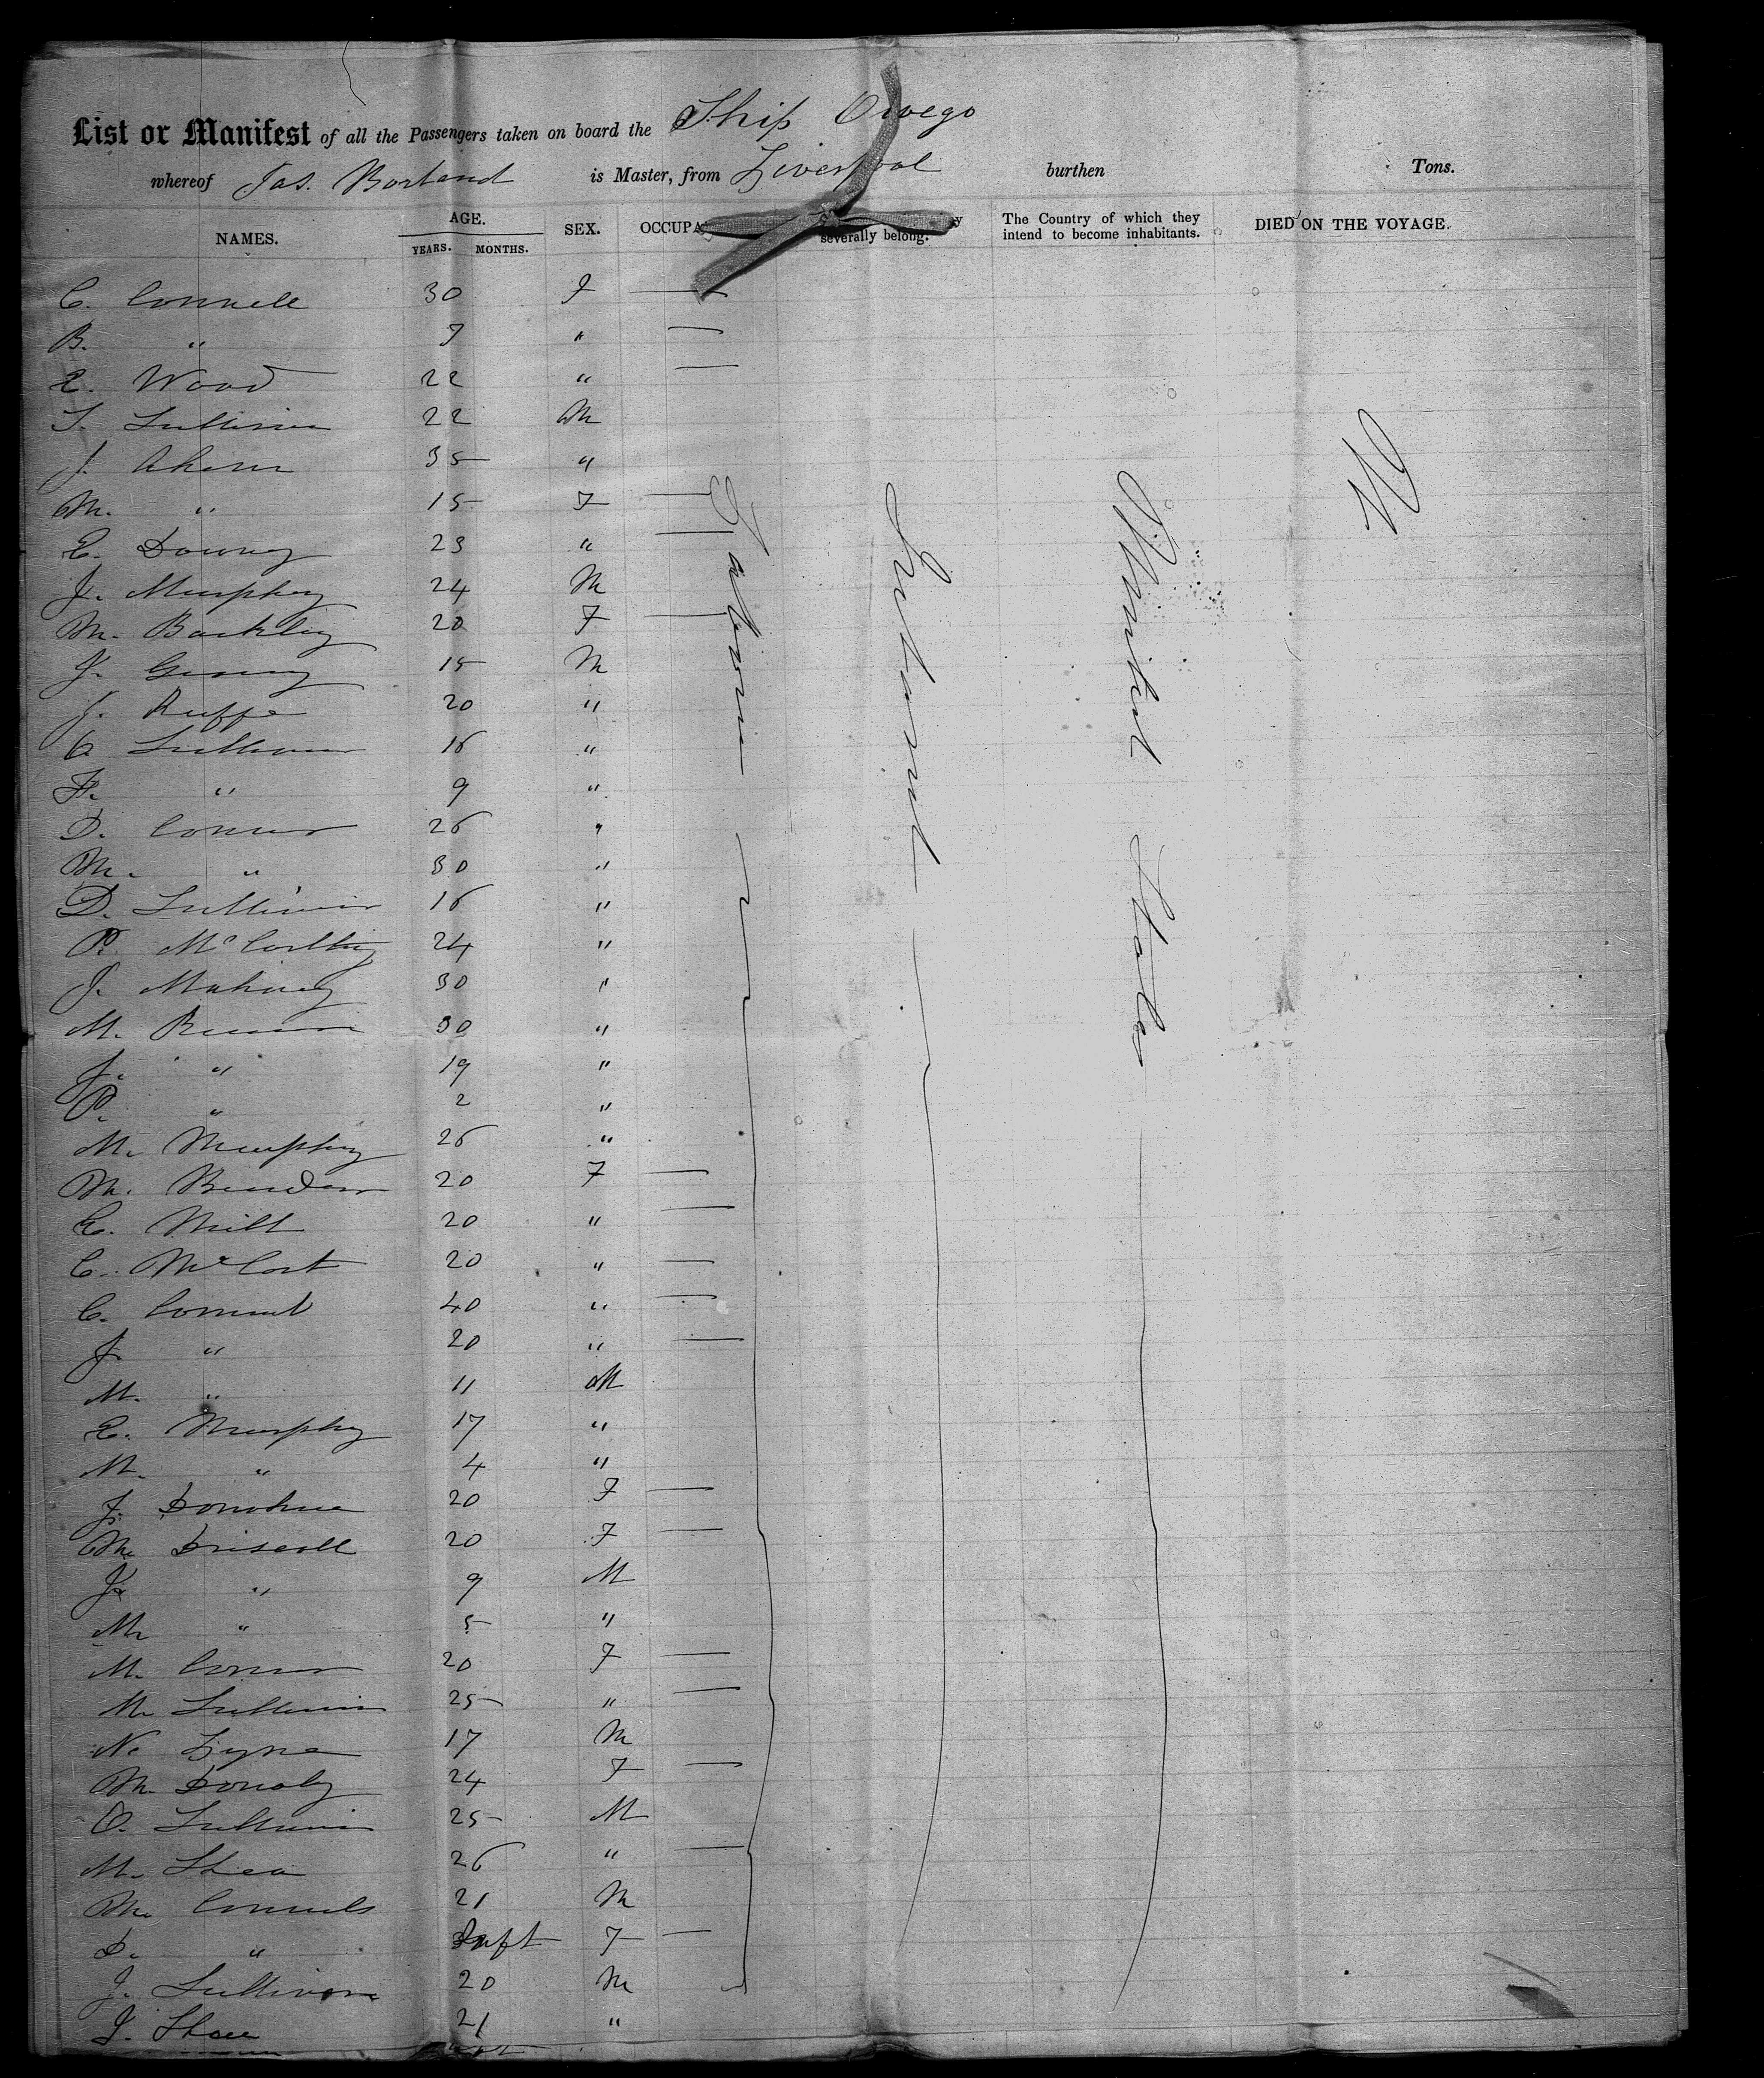 List or Manifest of all the Passengers taken on board the Ship Owego
whereof Jas. Borland is Master, from Liverpool burthen Tons.
NAMES. AGE. YEARS. MONTHS. SEX. OCCUPA severally belong. The Country of which they intend to become inhabitants. DIED ON THE VOYAGE.
C. Connell 30 F
B. " 7 "
E. Wood 22 "
T. Sullivan 22 M
J. Ahern 35 "
M. " 15 F
E. Downey 23 "
J. Murphey 24 M
M. Barkley 20 F
J. 15 M
J. 20 "
C Sullivan 16 "
F. " 9 "
D. Connor 26 "
M. " 30 "
D. Sullivan 16 "
P. McCarthy 24 "
J. Mahoney 30 "
M. 30 "
J. " 19 "
P. " 2 "
M. Murphey 26 "
M. 20 F
E. Mill 20 "
C. McCort 20 "
C. 40 "
J. " 20 "
M. " 11 M
E. Murphy 17 "
M. " 4 "
J. Donohue 20 F
M. Driscoll 20 F
J. " 9 M
M. " 5 "
M. Connor 20 F
M. Sullivan 25 "
N. Lyne 17 M
M. 24 F
O. Sullivan 25 M
M. Shea 26 "
M. Connels 21 M
D. " Inft F
J. Sullivan 20 M
J. Shea 21 "
Laborer
Ireland
United States